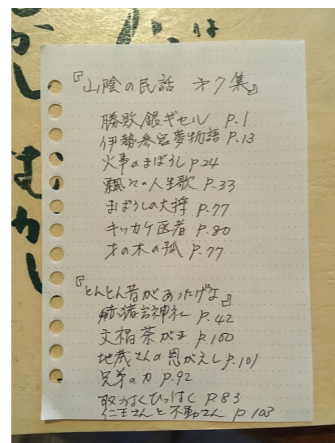 かし
むかし
は
『山陰の民話 オク集』
勝敗銀ギセル P.1
伊勢参宮夢物語 P.13
火事のまぼろし P.24
飄々の人生歌 P.33
まぼろしの大将 P.77
キッカケ医者 P.80
才の木の狐 P.77
『とんとん昔があったげな』
P.42
文福茶がま P.100
地蔵さんの恩がえし P.101
兄弟の力 P.92
取っつくひっつく P.83
仁王さんと不動さん P.103